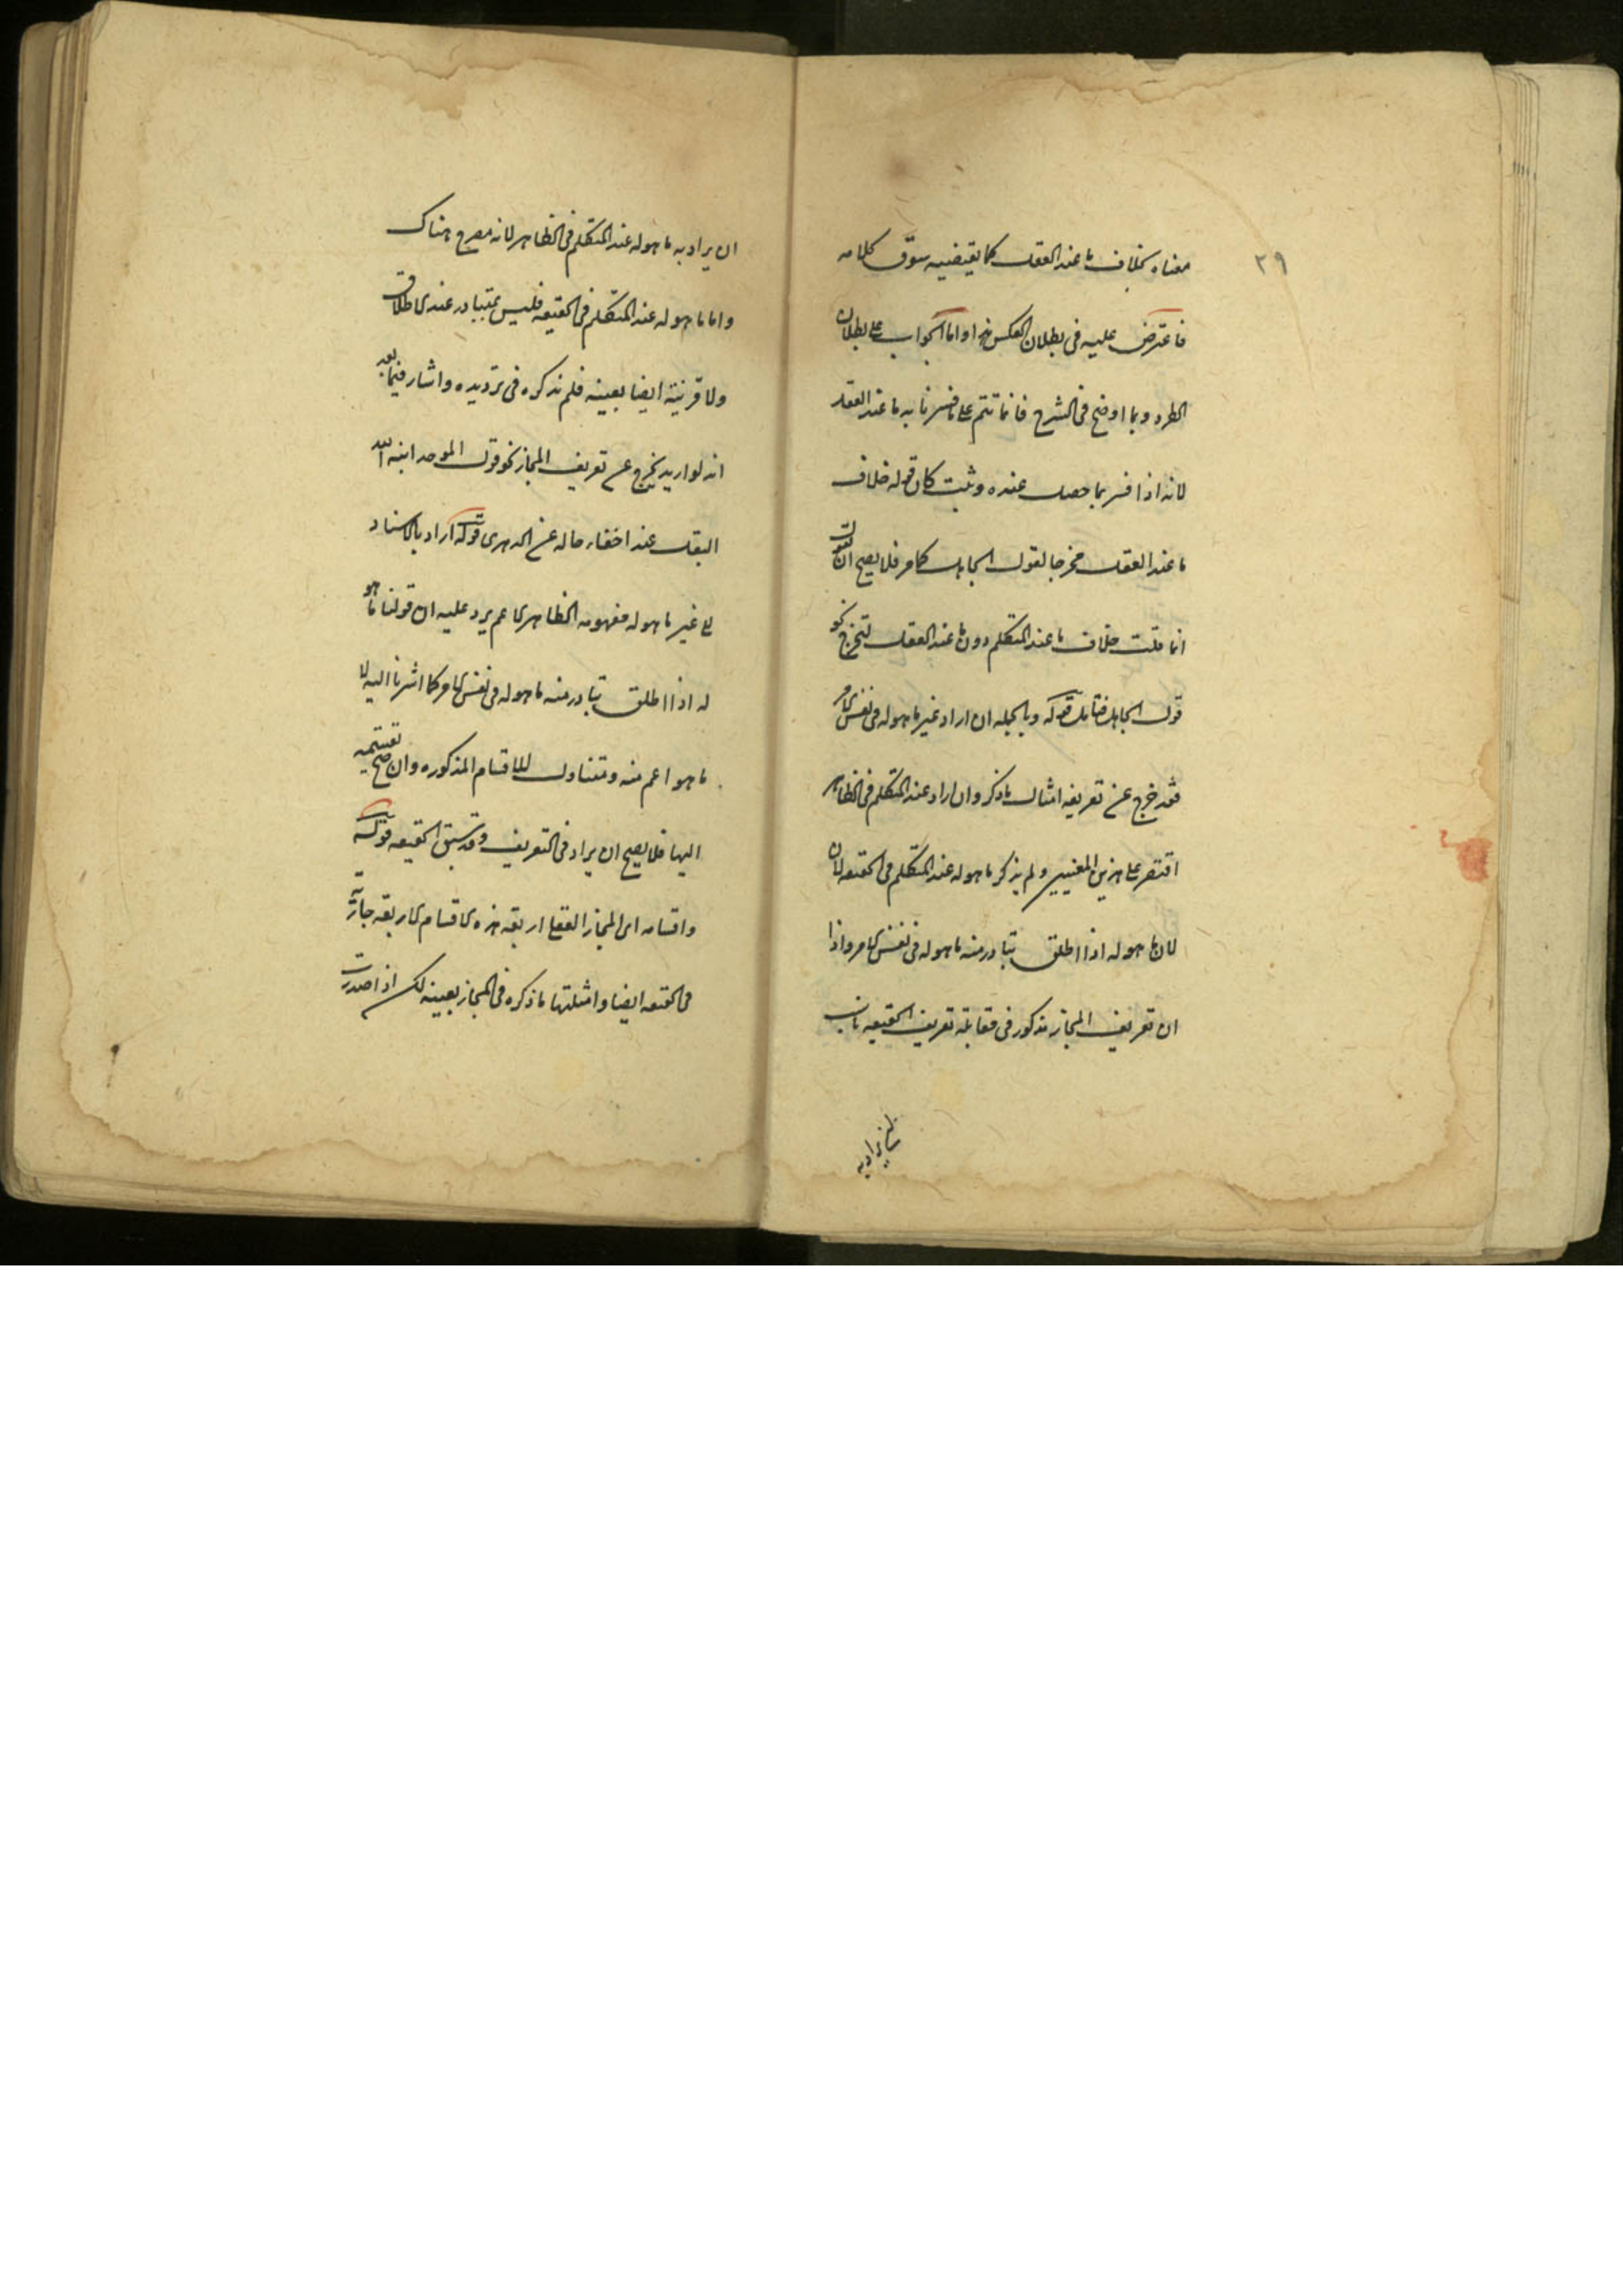 ٢٩
معناه بخلاف ما عند العقل كما يقتضيه سوق كلامه
فاعترض عليه فى بطلان العكس بهذا واما الجواب على بطلان
الطرد وبما اوضح فى الشرح فانما تتم على ما فسرنا به ما عند العقل
لانه اذا فسر بما حصل عنده وثبت كان قوله خلاف
ما عند العقل مخرجا لقول الجاهل كما مر فلا يصح ان يقول
انما قلت خلاف ما عند المتكلم دون ما عند العقل لتخرج نحو
قول الجاهل فتامل قوله وبالجمله ان اراد غير ما هو له فى نفس الامر
فقد خرج عن تعريفه امثال ما ذكر وان اراد عند المتكلم فى الظاهر
اقتصر على هذين المعنيين ولم يذكر ما هو له عند المتكلم فى الحقيقه لان
لان ما هو له اذا اطلق تبادر منه ما هو له فى نفس الامر واذا
ان تعريف المجاز مذكور فى مقابلة تعريف الحقيقه
ان يراد به
ان يراد به ما هو له عند المتكلم فى الظاهر لانه مصرح هناك
واما ما هو له عند المتكلم فى الحقيقه فليس بمتبادر عند الاطلاق
ولا قرينة ايضا بعينه فلم نذكره فى ترديده واشار فيما بعد
انه لو اريد يخرج عن تعريف المجاز نحو قول الموحد انبت الله
البقل عند اخفاء حاله عن الدهرى قوله اراد بالاسناد
الى غير ما هو له مفهومه الظاهرى الاعم يرد عليه ان قولنا ما هو
له اذا اطلق تبادر منه ما هو له فى نفس الامر كما اشرنا اليه لا
ما هو اعم منه ومتناول للاقسام المذكوره وان صح تقسيمه
اليها فلا يصح ان يراد فى التعريف وقد سبق الحقيقه قوله
واقسامه اى المجاز العقلى اربعة هذه الاقسام الاربعة جارية
فى الحقيقه ايضا وامثلتها ما ذكره فى المجاز بعينه لكن اذا صدرت